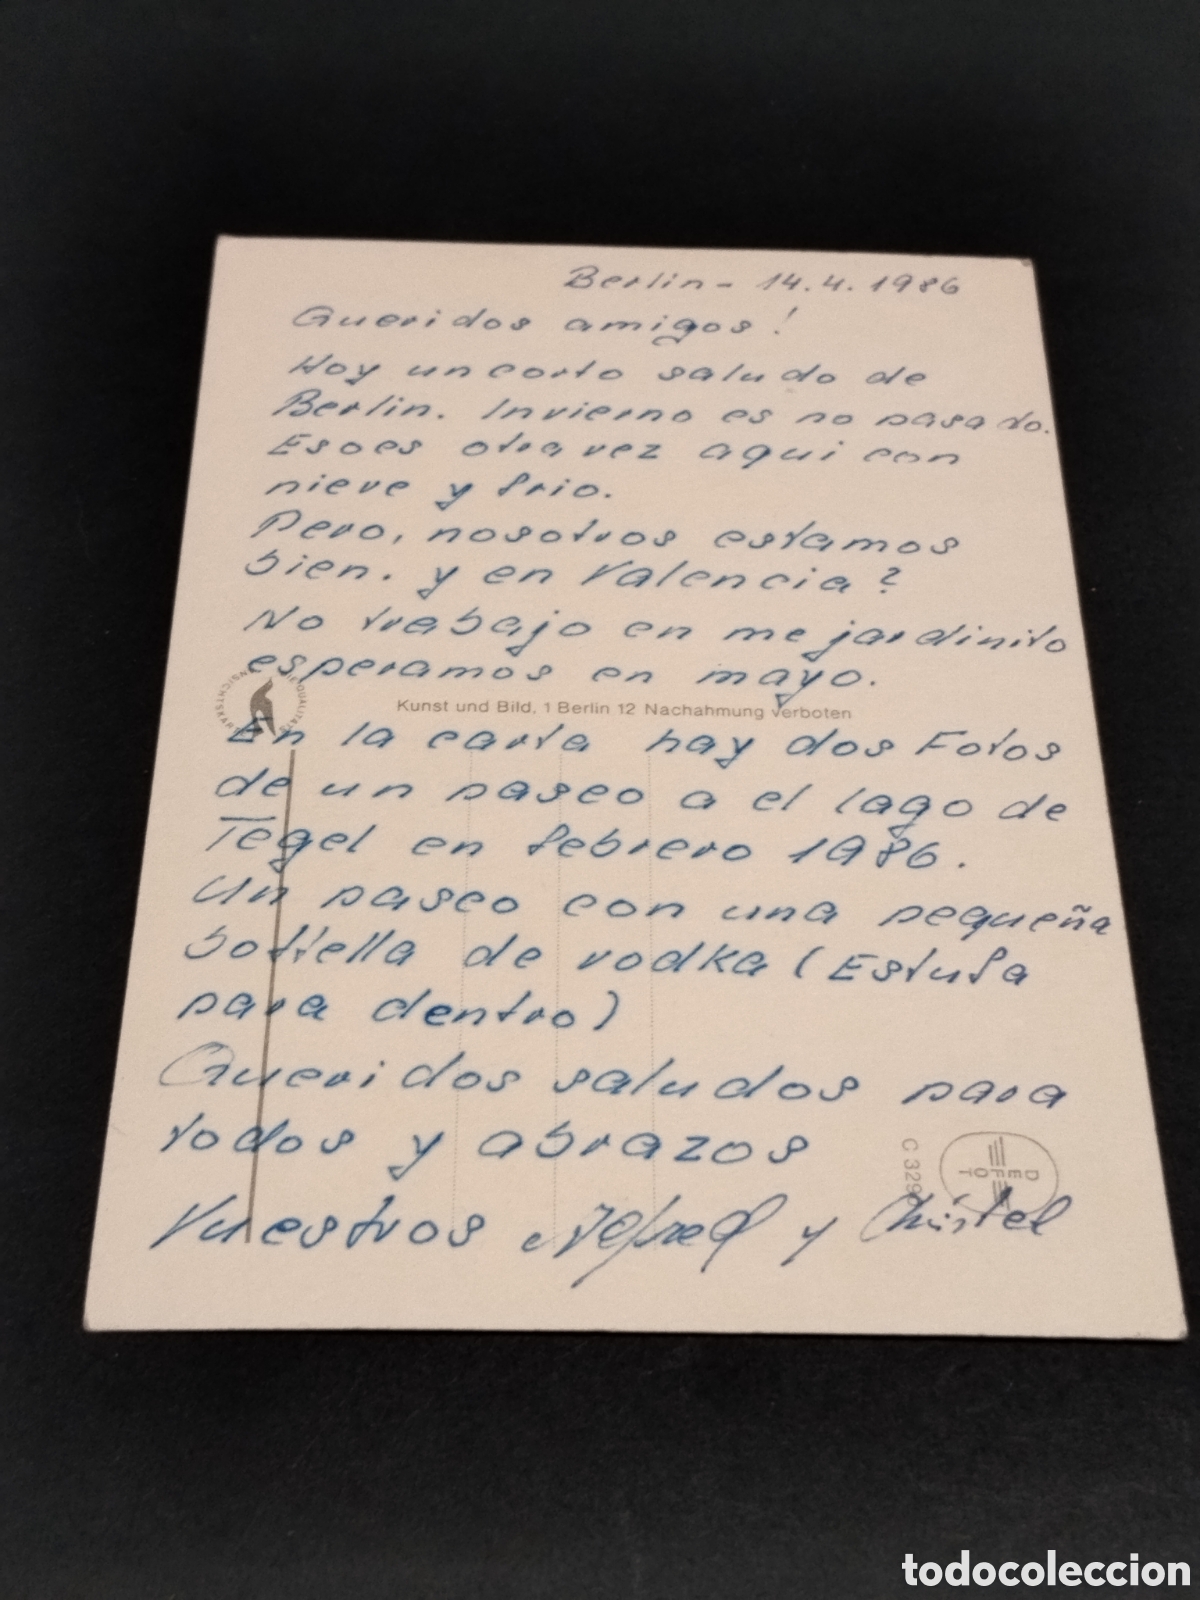 Berlin - 14.4.1986
Queridos amigos!
Hoy un corto saludo de
Berlin. Invierno es no pasado.
Eso es otra vez aqui con
nieve y frio.
Pero, nosotros estamos
bien. y en Valencia?
No trabajo en me jardinito
esperamos en mayo.
Kunst und Bild, 1 Berlin 12 Nachahmung verboten
En la carta hay dos Fotos
de un paseo a el lago de
Tegel en febrero 1986.
Un paseo con una pequeña
bottella de vodka (Estufa
para dentro)
Queridos saludos para
todos y abrazos
DEFOT
C 329
Vuestros Alfred y Christel
todocoleccion